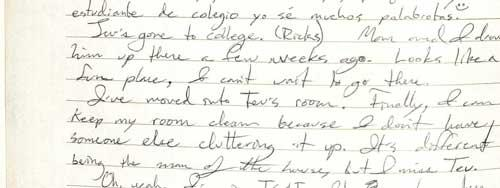 estudiante de colegio yo sé muchos palabrotas. ☺
Tev's gone to college. (Ricks) Mom and I drove
him up there a few weeks ago. Looks like a
fun place, I can't wait to go there.
I've moved into Tev's room. Finally, I can
keep my room clean because I don't have
someone else cluttering it up. It's different
being the man of the house, but I miss Tev.
Oh, yeah,